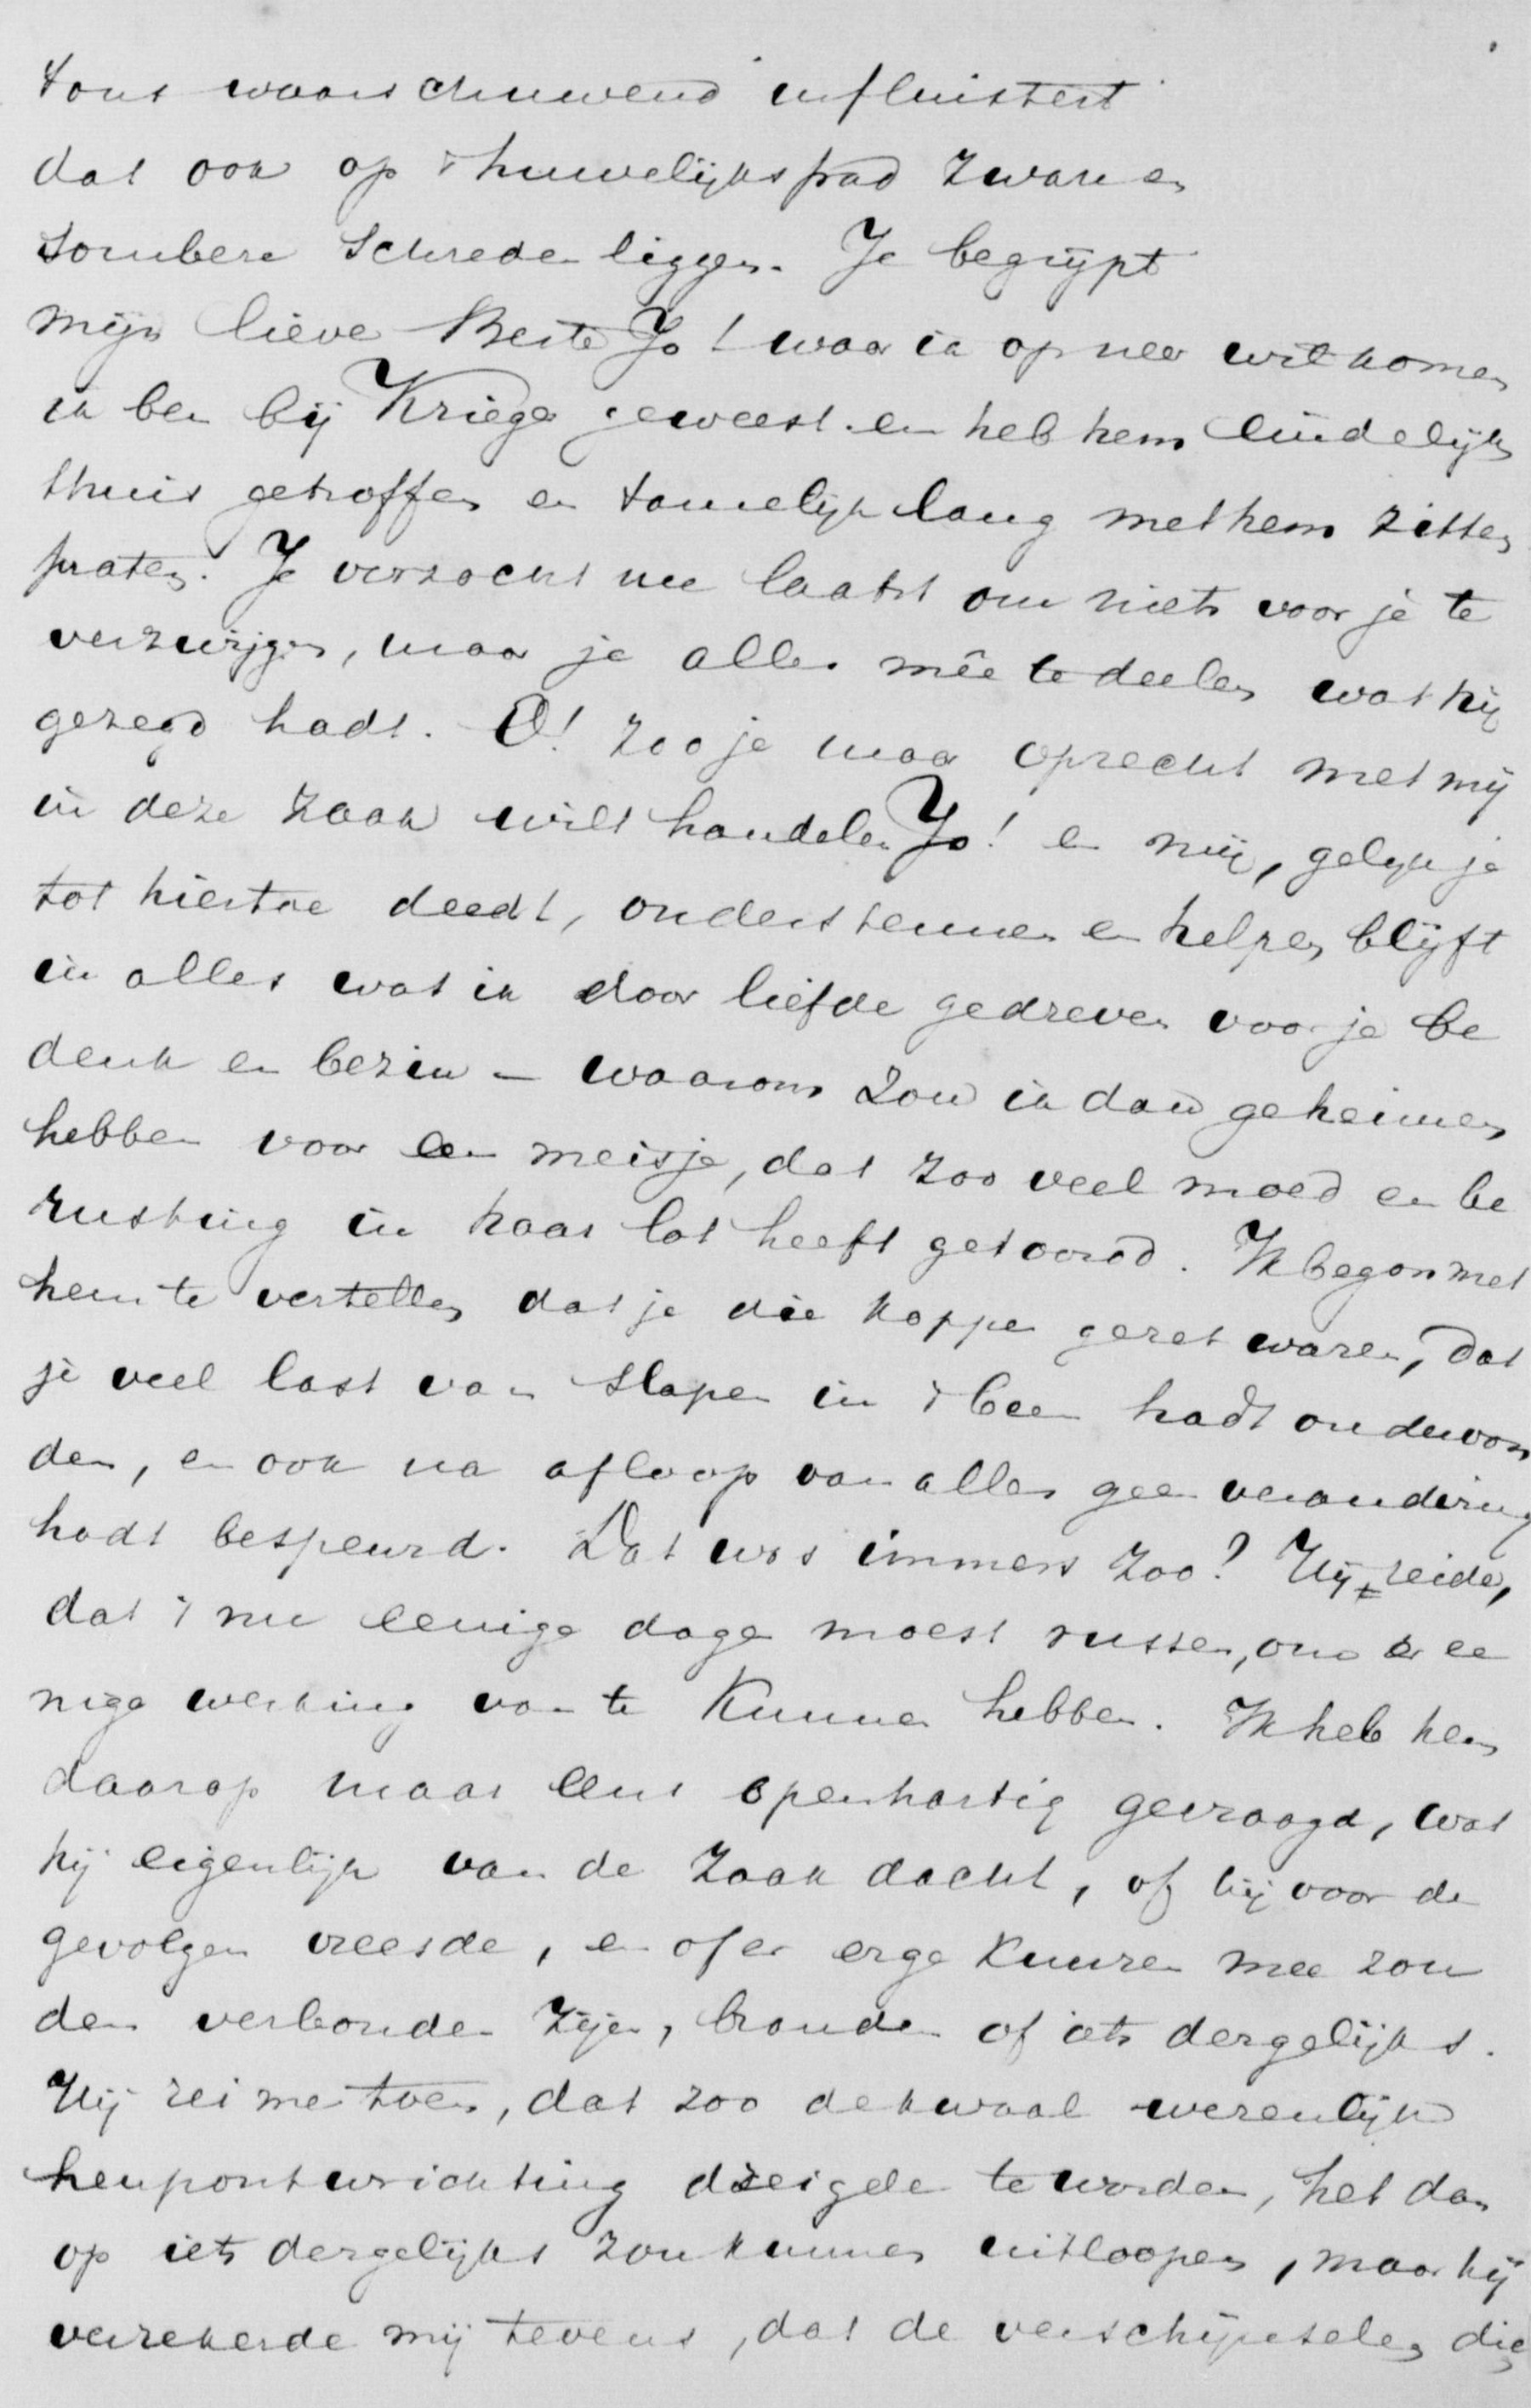 tons waarschuwend influistert
dat ook op 't huwelijkspad zware en
sombere schreden liggen. Je begrijpt
mijn lieve Beste Jo! waar ik op neer wil komen
ik ben bij Krieger geweest en heb hem eindelijk
thuis getroffen en tamelijk lang met hem zitten
praten. Je verzocht me laatst om niets voor je te
verzwijgen, maar je alles meê te deelen wat hij
gezegd hadt. O! zoo je maar oprecht met mij
in deze zaak wilt handelen Jo! en mij, gelijk je
tot hiertoe deedt, ondersteunen en helpen blijft
in alles wat ik door liefde gedreven voor je be
denk en bezin – waarom zou ik dan geheimen
hebben voor een meisje, dat zoo veel moed en be
rusting in haar lot heeft getoond. Ik begon met
hem te vertellen dat je die koppen gezet waren, dat
je veel last van slapen in 't been hadt ondervon
den, en ook na afloop van alles geen verandering
hadt bespeurd. Dat was immers zoo? Hij zeide,
dat 't nu eenige dagen moest rusten, om er ee
nige werking van te kunnen hebben. Ik heb hem
daarop maar eens openhartig gevraagd, wat
hij eigenlijk van de zaak dacht, of hij voor de
gevolgen vreesde, en of er erge kuuren mee zou
den verbonden zijn, branden of iets dergelijks.
Hij zei me toen, dat zoo de kwaal wezenlijk
heupontwrichting dreigde te worden, het dan
op iets dergelijks zou kunnen uitloopen, maar hij
verzekerde mij tevens, dat de verschijnselen die